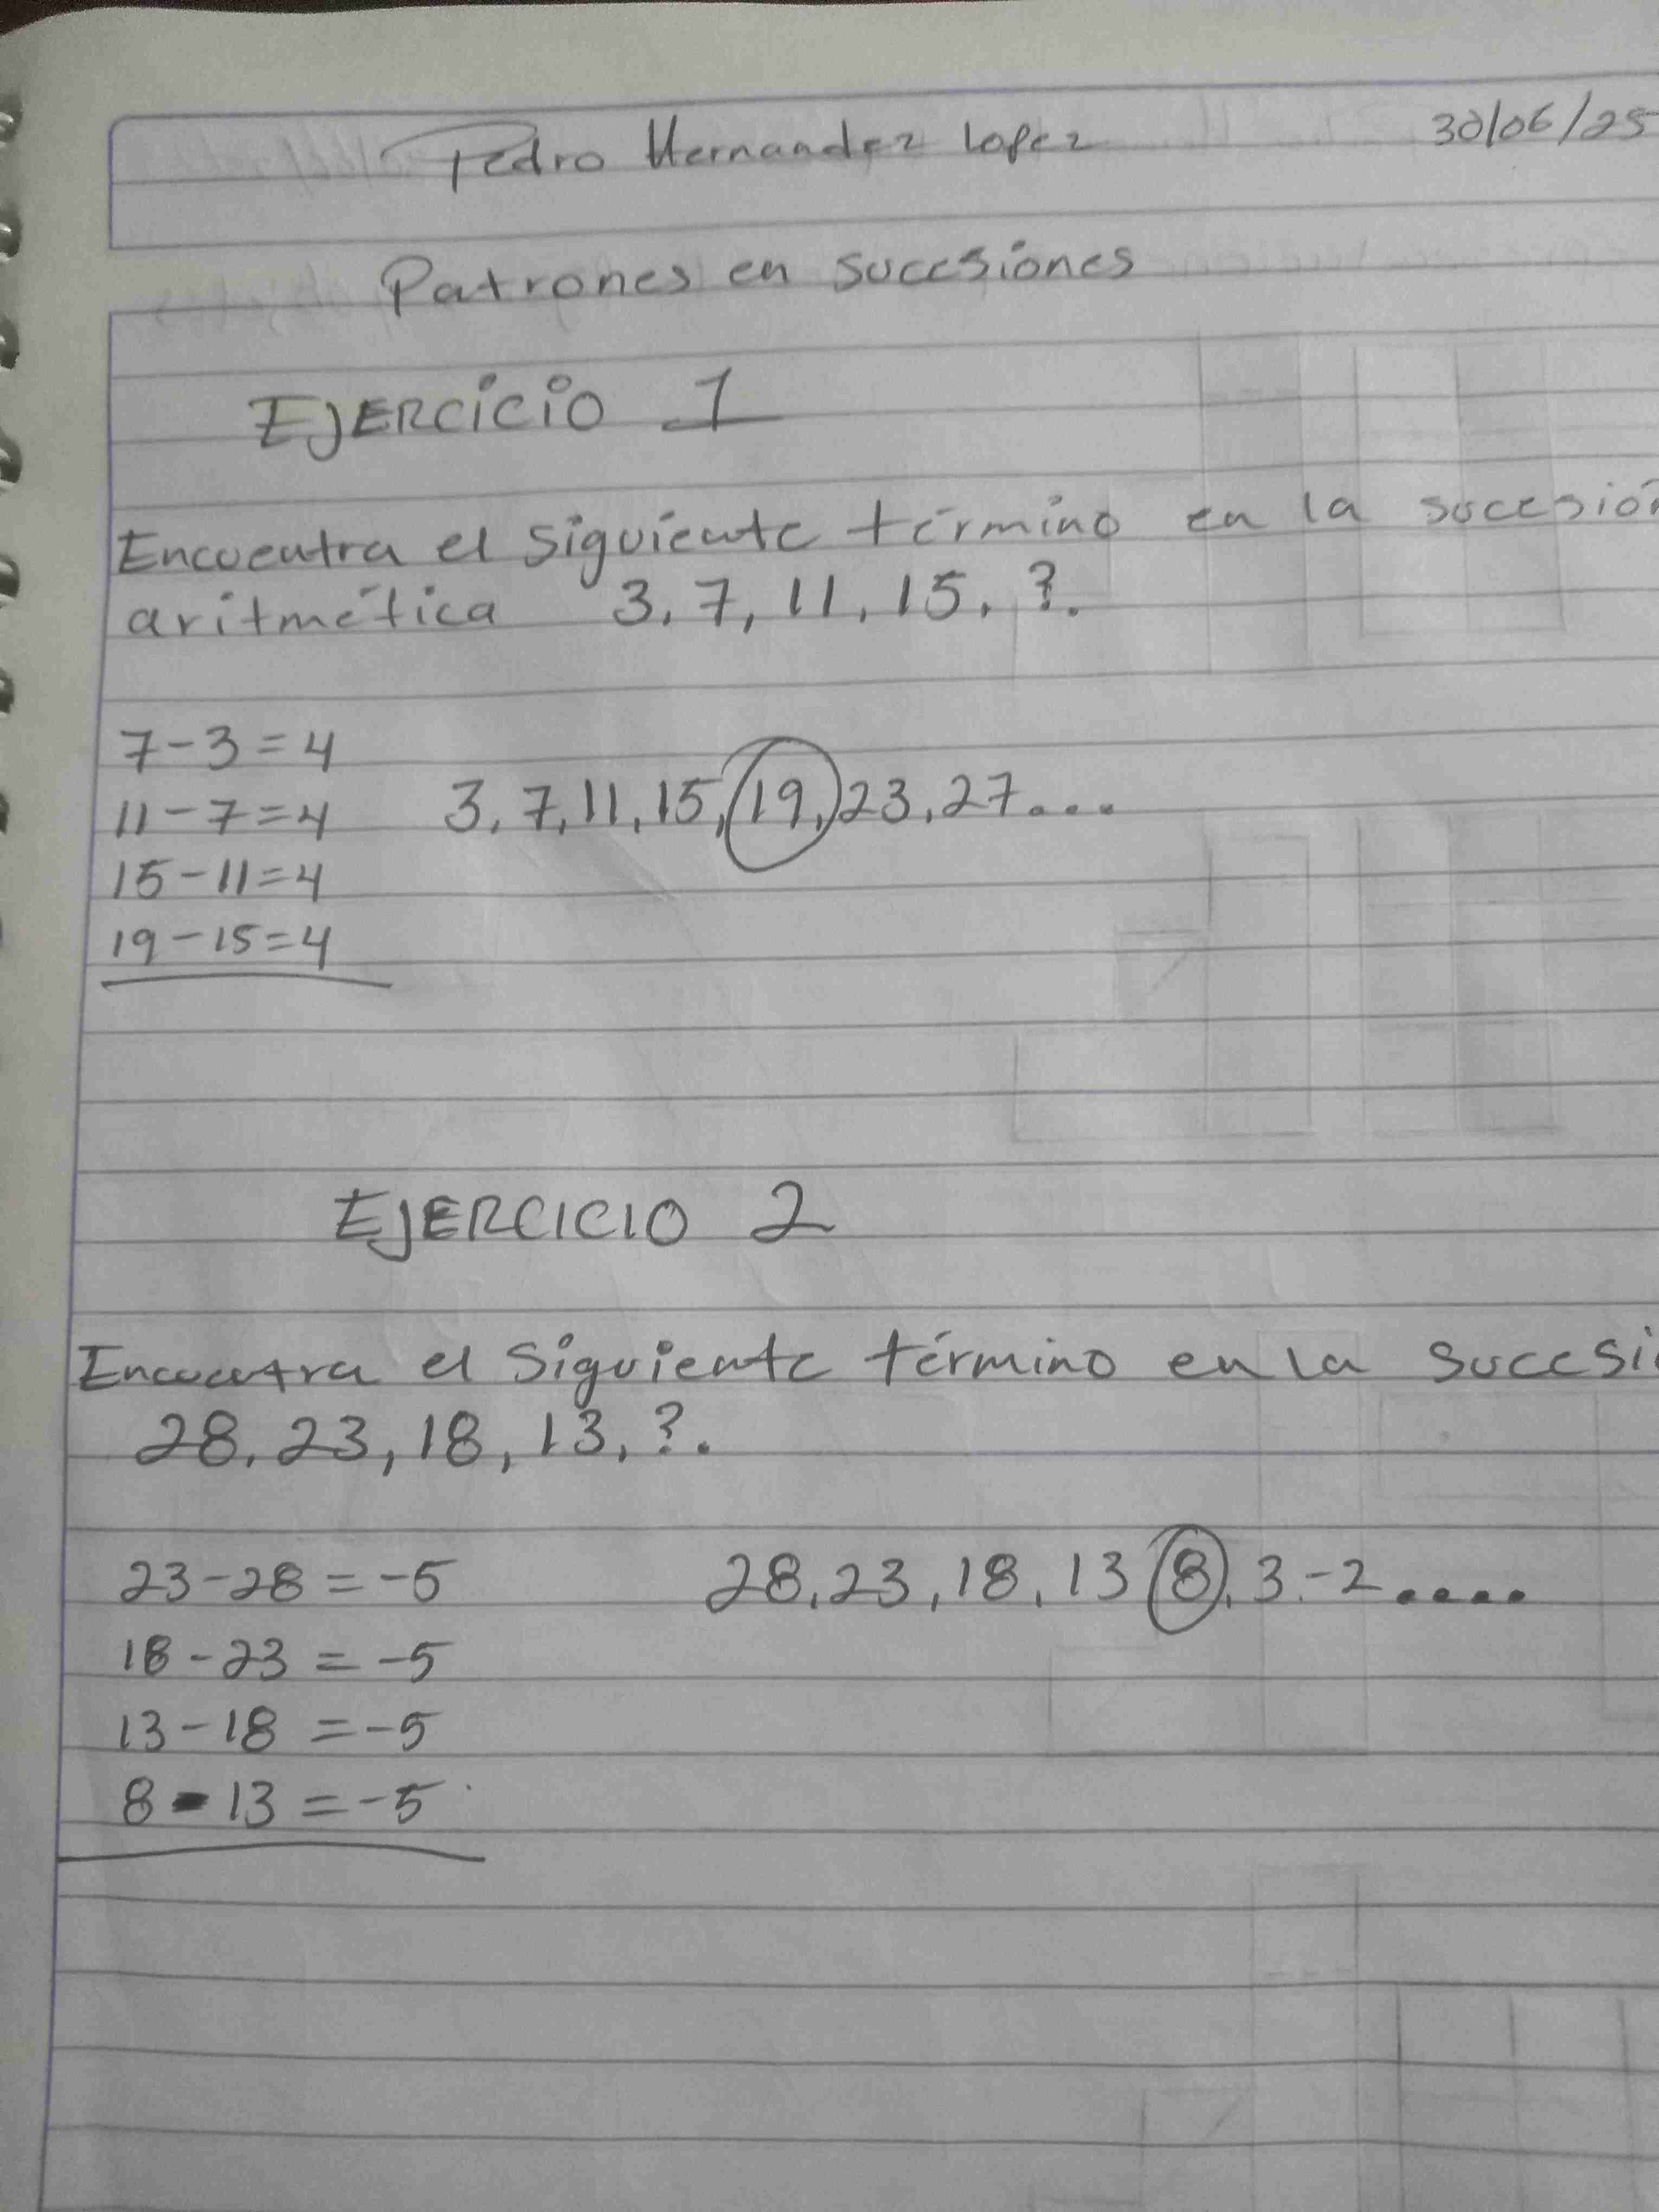 Pedro Hernandez Lopez 30/06/25
Patrones en sucesiones
EJERCICIO 1
Encuentra el siguiente término en la sucesión
aritmética 3, 7, 11, 15, ?.
7-3=4
11-7=4 3, 7, 11, 15, 19, 23, 27...
15-11=4
19-15=4
EJERCICIO 2
Encuentra el siguiente término en la sucesi
28, 23, 18, 13, ?.
23-28=-5 28, 23, 18, 13 8, 3.-2....
18-23=-5
13-18=-5
8-13=-5